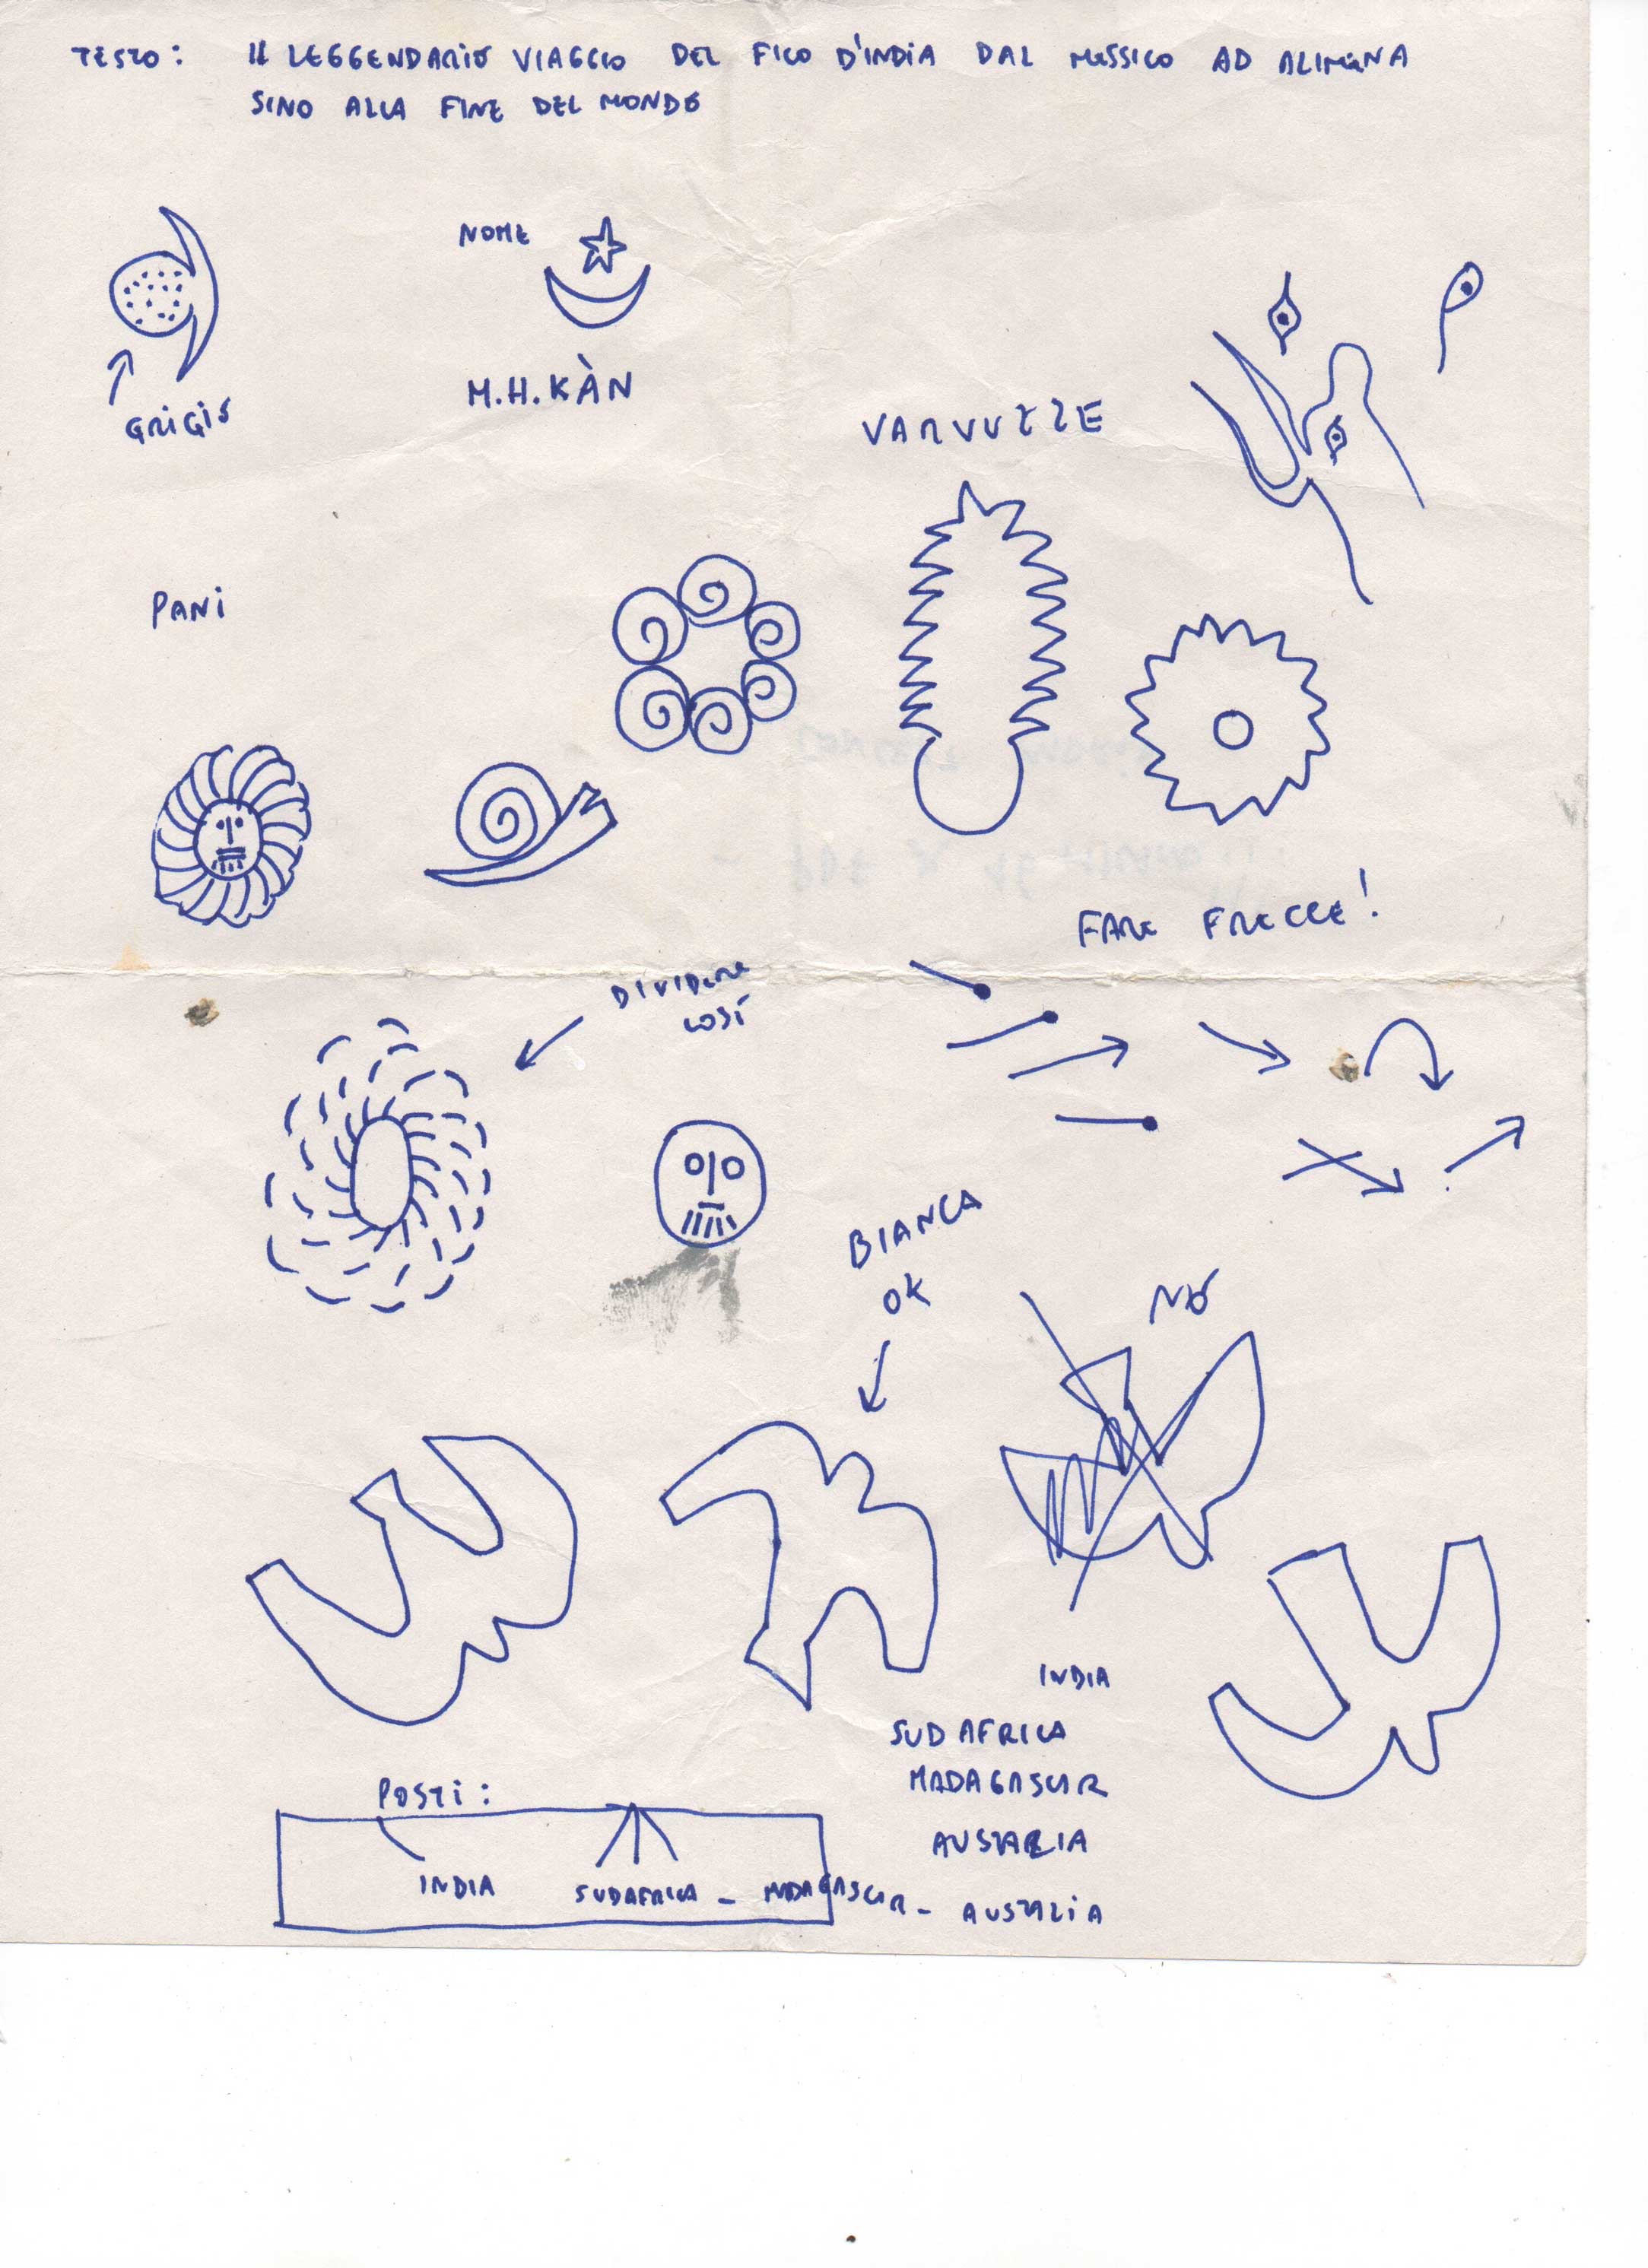 TESTO: IL LEGGENDARIO VIAGGIO DEL FICO D'INDIA DAL MESSICO AD ALIMENA
SINO ALLA FINE DEL MONDO
NOME
M.H.KÀN
GRIGIO
VARVUZZE
PANI
FARE FRECCE!
DIVIDERE
COSÍ
BIANCA
OK
NO
INDIA
SUD AFRICA
MADAGASCAR
AUSTRALIA
POSTI:
INDIA SUDAFRICA - MADAGASCAR - AUSTALIA